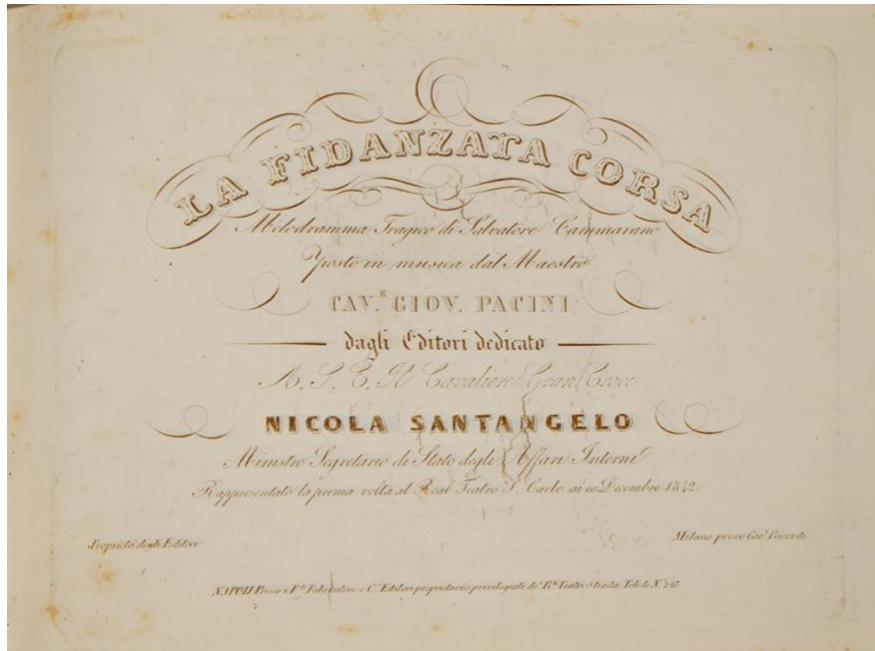 LA FIDANZATA CORSA
Melodramma Tragico di Salvatore Cammarano
Posto in musica dal Maestro
CAV.E GIOV. PACINI
dagli Editori dedicato
A. S. E. Il Cavaliere Gran Croce
NICOLA SANTANGELO
Ministro Segretario di Stato degli Affari Interni
Rappresentato la prima volta al Real Teatro S. Carlo ai 10 Decembre 1842.
Proprietà degli Editori
Milano presso Gio. Ricordi
NAPOLI Presso e C. Editori proprietarii privilegiati de' Rli. Teatri Strada Toledo N.